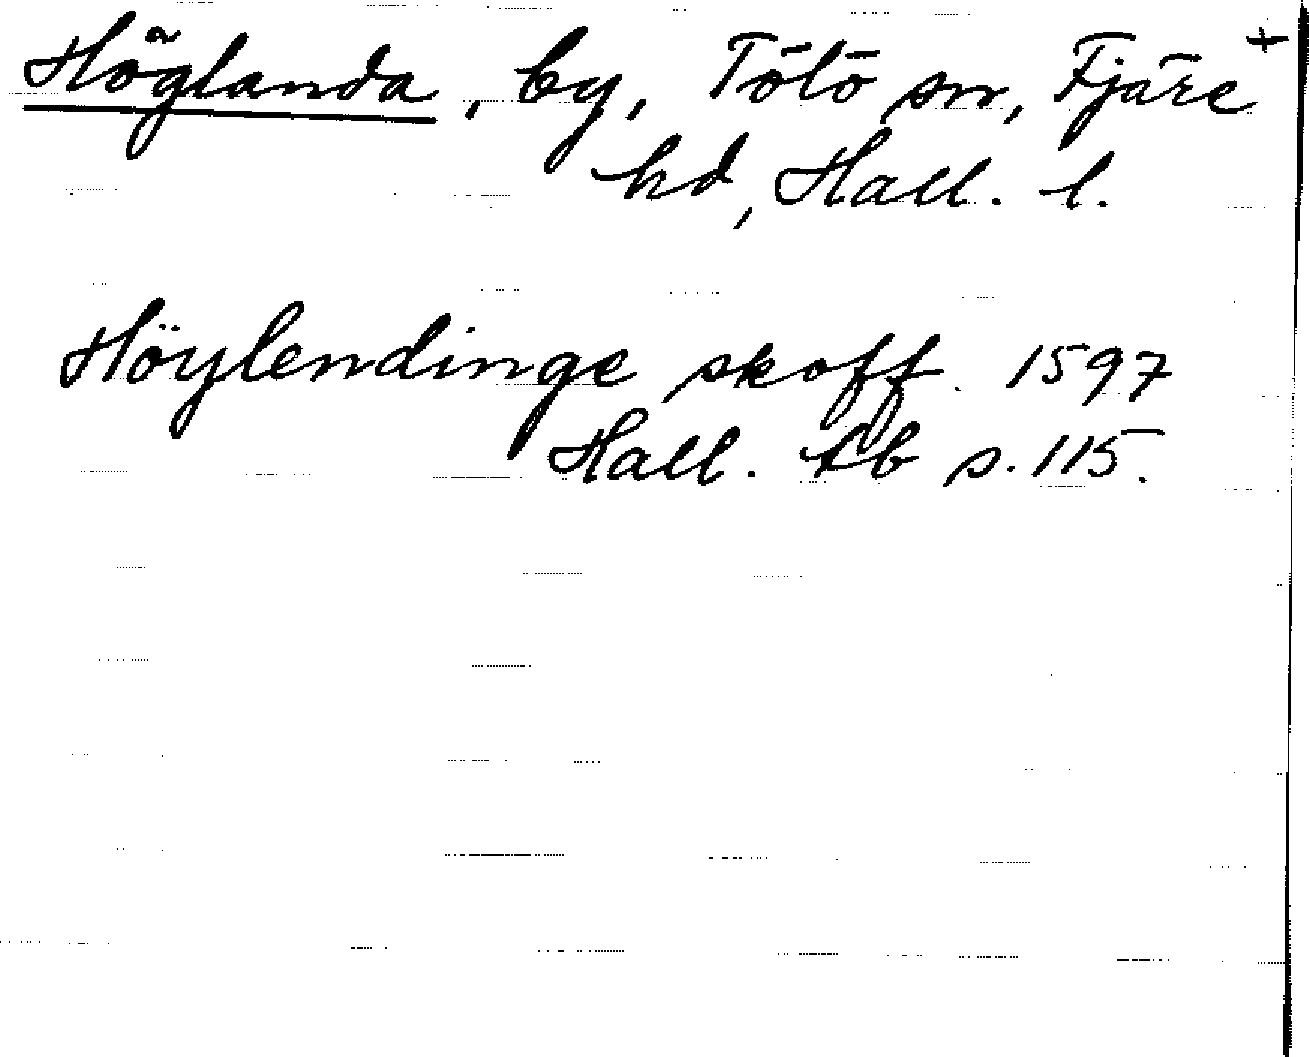 Höglanda, by, Tölö sn, Fjäre +
hd, Hall. l.
Höylendinge skoff. 1597
Hall. tb s. 115.